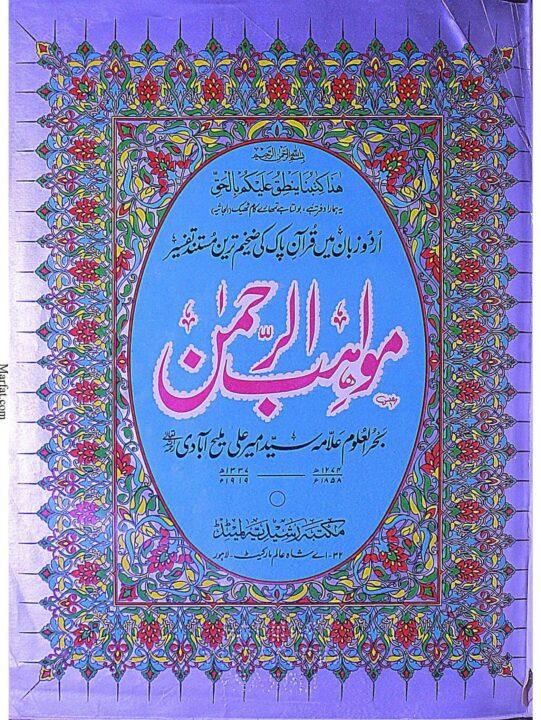 بسم اللہ الرحمن الرحیم
هٰذَا كِتٰبُنَا يَنْطِقُ عَلَيْكُمْ بِالْحَقِّ
یہ ہمارا دفتر ہے، بولتا ہے تمہارے کام ٹھیک (الجاثیہ)
اُردُو زبان میں قرآنِ پاک کی ضخیم ترین مُستند تفسیر
مواہب الرحمٰن
بحر العلوم علّامہ سیّد امیر علی ملیح آبادی
۱۲۷۴ھ ۱۳۳۷ھ
۱۸۵۸ء ۱۹۱۹ء
مکتبہ رشیدیہ لمیٹڈ
۳۲-اے شاہ عالم مارکیٹ، لاہور
Marfat.com